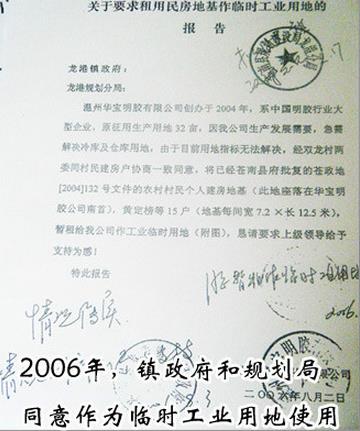 关于要求租用民房地基作临时工业用地的
报 告
龙港镇政府：
龙港规划分局：
温州华宝明胶有限公司创办于 2004 年，系中国明胶行业大
型企业，原征用生产用地 32 亩，因我公司生产发展需要，急需
解决冷库及仓库用地，由于目前用地指标无法解决，经双龙村两
委同村民建房户协商一致同意，将已经苍南县府批复的苍政地
[2004]132 号文件的农村村民个人建房地基（此地座落在华宝明
胶公司南首），黄定榜等 15 户（地基每间宽 7.2 × 长 12.5 米），
暂租给我公司作工业临时用地（附图），恳请要求上级领导给予
支持为感！
特此报告
情况属实
2006.
限公司
二00六年八月二日
2006年，镇政府和规划局
同意作为临时工业用地使用